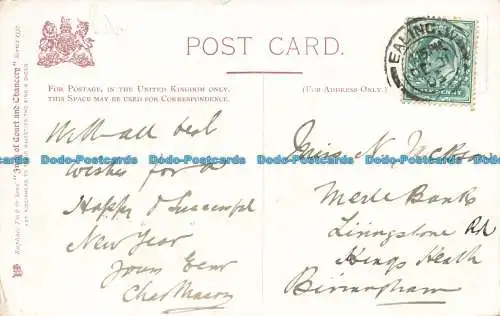 POST CARD.
FOR POSTAGE, IN THE UNITED KINGDOM ONLY,
THIS SPACE MAY BE USED FOR CORRESPONDENCE.
(FOR ADDRESS ONLY.)
EALING.
With all best
wishes for a
Happy & Successful
New Year
Yours Ever
Chas
Miss N. Jackson
Merle Bank
Livingstone Rd
Kings Heath
Birmingham
Raphael Tuck & Sons'
of Court and Chancery"
Dodo-Postcards Dodo-Postcards Dodo-Postcards Dodo-Postcards
Dodo-Postcards Dodo-Postcards Dodo-Postcards Dodo-Postcards
Dodo-Postcards Dodo-Postcards Dodo-Postcards Dodo-Postcards